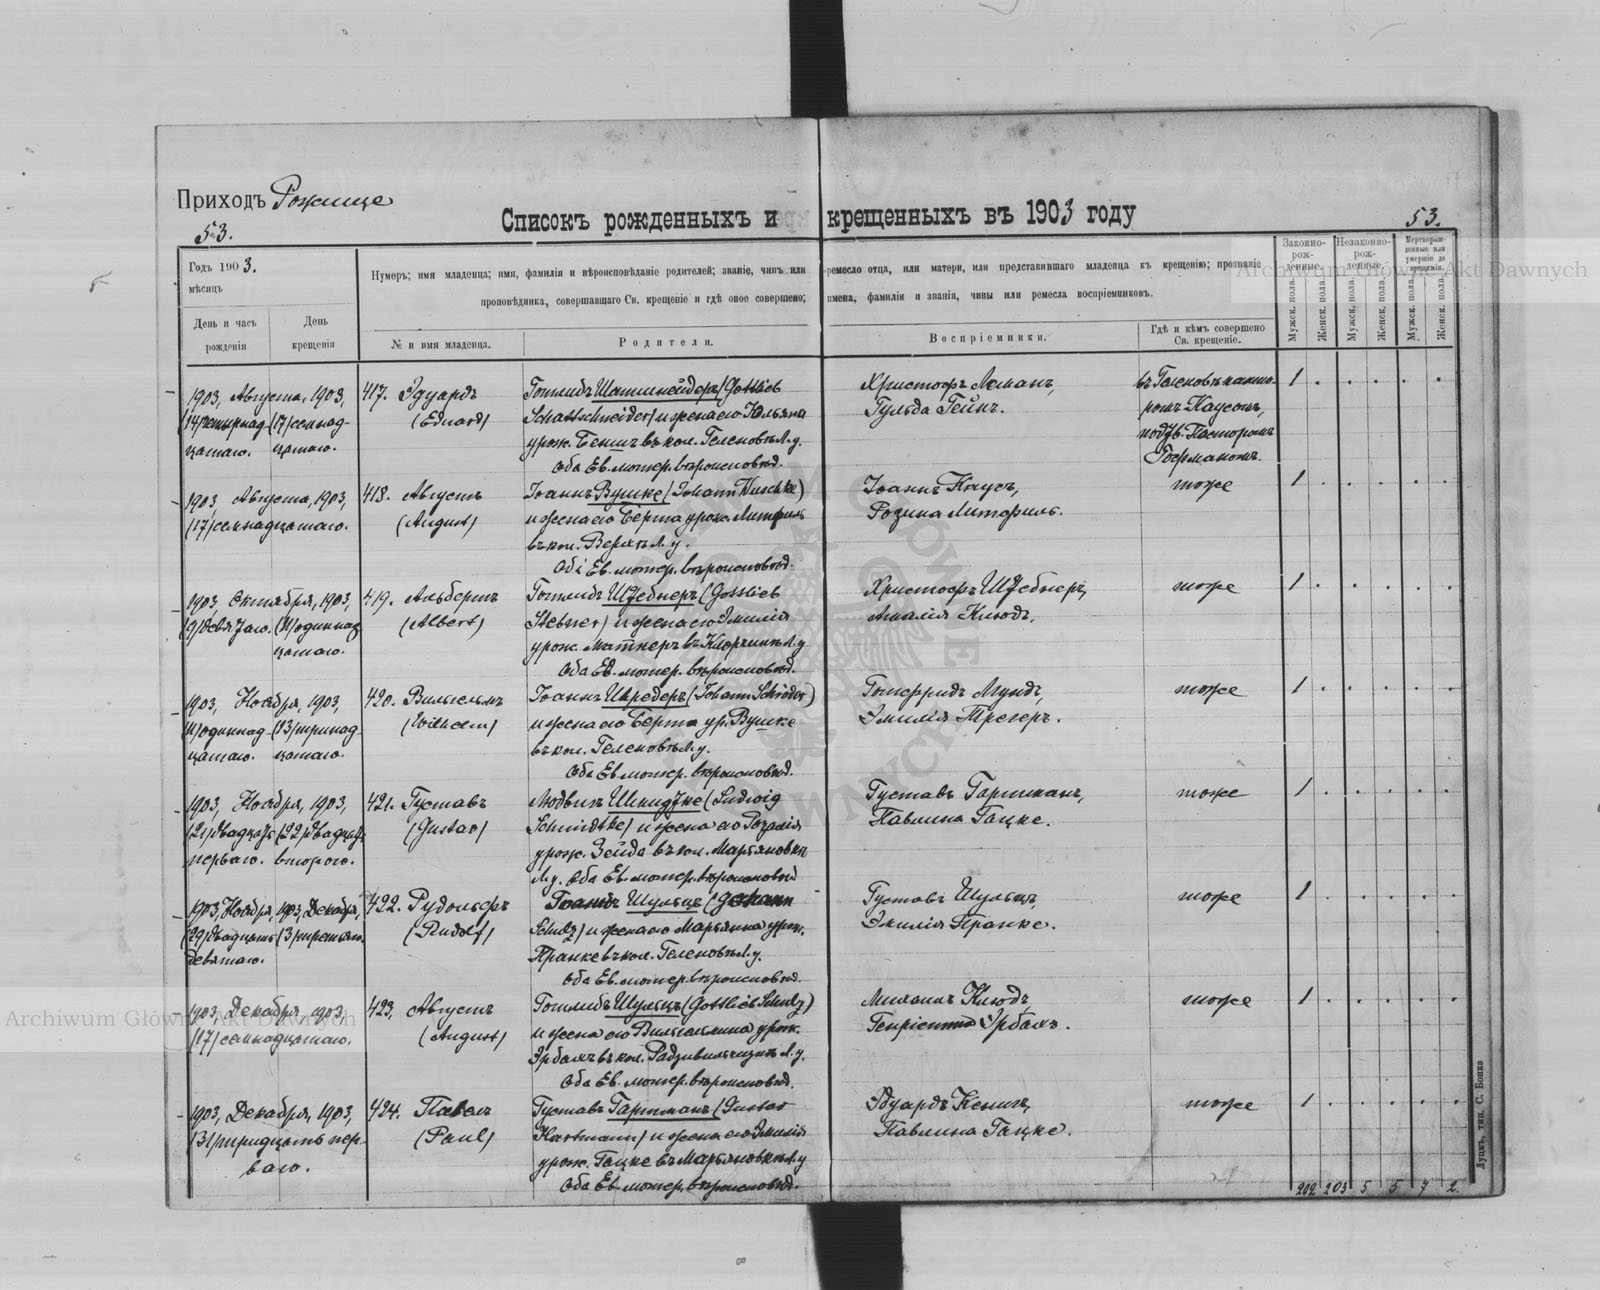 Приходъ Рожище
53.
Списокъ рожденныхъ и крещенныхъ въ 1903 году
53.
Годъ 1903.
мѣсяцъ
День и часъ рожденія
День крещенія
Нумеръ; имя младенца; имя, фамилія и вѣроисповѣданіе родителей; званіе, чинъ или ремесло отца, или матери, или представившаго младенца къ крещенію; прозваніе
проповѣдника, совершавшаго Св. крещеніе и гдѣ оное совершено; имена, фамиліи и званія, чины или ремесла воспріемниковъ.
№ и имя младенца.
Родители.
Воспріемники.
Гдѣ и кѣмъ совершено Св. крещеніе.
Законно-рожденные.
Незаконно-рожденные.
Мертворожденные или умершіе до крещенія.
Мужск. пола.
Женск. пола.
Мужск. пола.
Женск. пола.
Мужск. пола.
Женск. пола.
1903, Августа, 1903, 417. Эдуардъ Готлибъ Шатшнейдеръ (Gottlieb Христофъ Леманъ, въ Геленовѣ канто- 1
(14) четырнад- (17) семнад- (Eduard) Schattschneider) и жена его Юльяна Гульда Гейн. ромъ Каусомъ,
цатаго. цатаго. урож. Бениш въ кол. Геленовѣ Л. у. подтв. Пасторомъ
Оба Ев. лютер. вѣроисповѣд. Германомъ.
1903, Августа, 1903, 418. Августъ Іоаннъ Вушке (Johann Wuschke) Іоаннъ Каусъ, тоже 1
(17) семнадцатаго. (August) и жена его Берта урож. Литфиль Розина Литфиль.
въ кол. Верхѣ Л. у.
Обѣ Ев. лютер. вѣроисповѣд.
1903, Октября, 1903, 419. Альбертъ Готлибъ Штебнеръ (Gottlieb Христофъ Штебнеръ, тоже 1
(9) девятаго. (11) одиннад- (Albert) Stebner) и жена его Эмилія Амалія Клюдъ.
цатаго. урож. Мантнеръ въ Л. у
Оба Ев. лютер. вѣроисповѣд.
1903, Ноября, 1903, 420. Вильгельмъ Іоаннъ Шредеръ (Johann Schröder) Готфридъ Мундъ, тоже 1
(11) одиннад- (13) тринад- (Wilhelm) и жена его Берта ур. Вушке Эмилія Трегеръ.
цатаго. цатаго. въ кол. Геленовѣ Л. у.
Оба Ев. лютер. вѣроисповѣд.
1903, Ноября, 1903, 421. Густавъ Людвигъ Шмидтке (Ludwig Густавъ Гартманъ, тоже 1
(21) двадцать (22) двадцать (Gustav) Schmidtke) и жена его Розалія Павлина Гацке.
перваго. второго. урож. Зейда въ кол. Марьяновкѣ
Л. у. Оба Ев. лютер. вѣроисповѣд
1903, Ноября, 1903, Декабря, 422. Рудольфъ Іоаннъ Шульцъ (Johann Густавъ Шульцъ, тоже 1
(29) двадцать (3) третьяго. (Rudolf) Schulz) и жена его Марьянна урож. Эмилія Пранке.
девятаго. Пранке въ кол. Геленовѣ Л. у.
Оба Ев. лютер. вѣроисповѣд.
1903, Декабря, 1903, 423. Августъ Готлибъ Шульцъ (Gottlieb Schulz) Михаилъ Клюдъ, тоже 1
(17) семнадцатаго. (August) и жена его Вильгельмина урож. Генріетта Эрбахъ.
Эрбахъ въ кол. Л. у.
Оба Ев. лютер. вѣроисповѣд.
1903, Декабря, 1903, 424. Павелъ Густавъ Гартманъ (Gustav Эдуардъ Кенигъ, тоже 1
(31) тридцать пер- (Paul) Hartmann) и жена его Эмилія Павлина Гацке.
ваго. урож. Гацке въ Марьяновкѣ Л. у
Оба Ев. лютер. вѣроисповѣд.
202 203 5 5 7 2.
Луцкъ, тип. С. Бокка
Archiwum Główne Akt Dawnych
Archiwum Główne Akt Dawnych